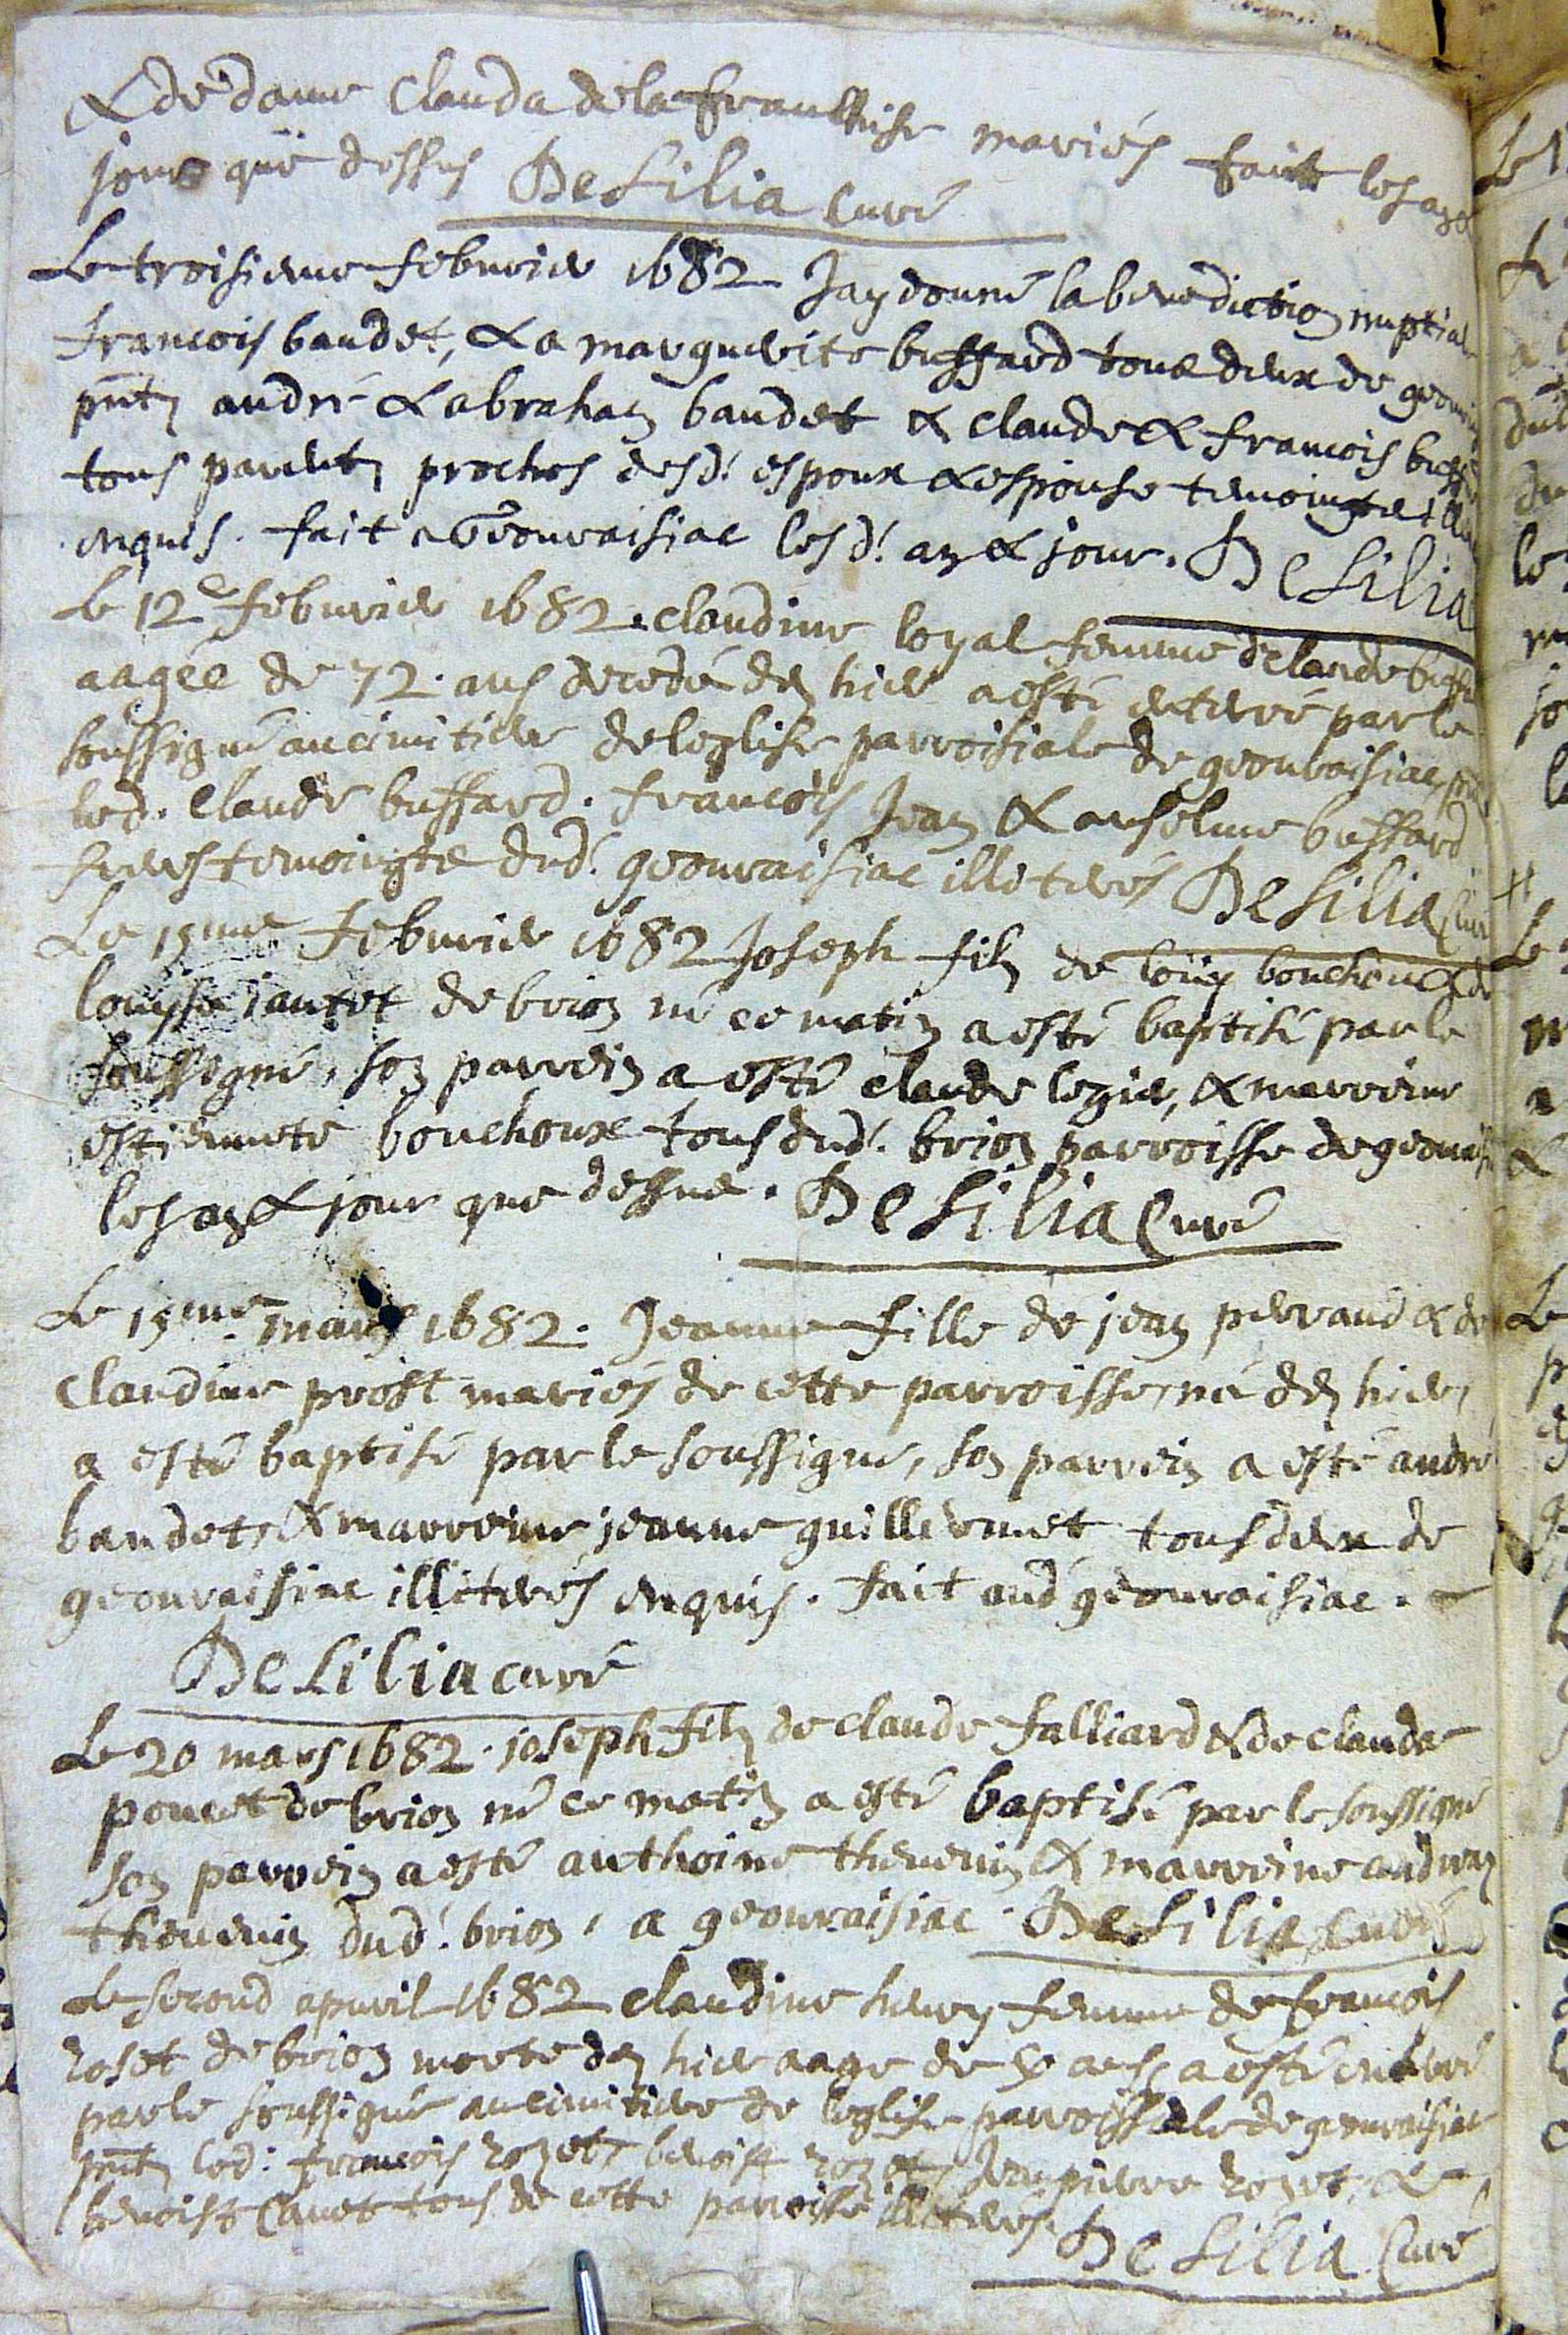 & de dame Clauda dela franchise mariés fait les an &
jour que dessus De Lilia Curé
Le troisieme febvrier 1682 Jay donné la benediction nuptiale
francois baudet, & a marguerite buffard tous deux de geovraisiac
pnts andré & abraham baudet & claude & francois buffard
tous parents proches desd. espoux & espouse temoingts
enquis. fait a Geovraisiac lesd. an & jour. De Lilia
Le 12e febvrier 1682. claudine loyal femme de claude buffard
aagée de 72. ans decedé dez hier a esté enterré par le
soussigné au cimitier de leglise parroisiale de geovraisiac pnts
led. Claude buffard. francois Jean & anselme buffard
freres temoingts dud. geovraisiac illiterés De Lilia Curé
Le 15me febvrier 1682 Joseph fils de loüys bouchoux & de
louyse jantet de brion né ce matin a esté baptisé par le
soussigné, son parrein a esté claude legier, & marreine
estiennete bouchoux tous dud. brion parroisse de geovraisiac
les an & jour que dessus. De Lilia Curé
Le 15me mars 1682. Jeanne fille de jean perraud & de
claudine prost mariés de cette parroisse, né dez hier,
a esté baptisé par le soussigné, son parrein a esté andré
baudet, & marreine jeanne guillermet tous deux de
geovraisiac illiterés enquis. fait aud geovraisiac.
De Lilia curé
Le 20 mars 1682. joseph fils de claude falliard & de clauda
poncet de brion né ce matin a esté baptisé par le soussigné
son parrein a esté anthoine thevenin & marreine
thevenin dud. brion, a geovraisiac. De Lilia Curé
Le second apvril 1682 claudine henry femme de francois
rozet de brion morte dez hier aage de ans, a esté enterré
par le soussigné au cimitiere de leglise parroissiale de geovraisiac
pnts led: francois rozet, benoist rozet, Jean pierre rozet, &
benoist Cavet tous de cette parroisse illiterés. De Lilia Curé